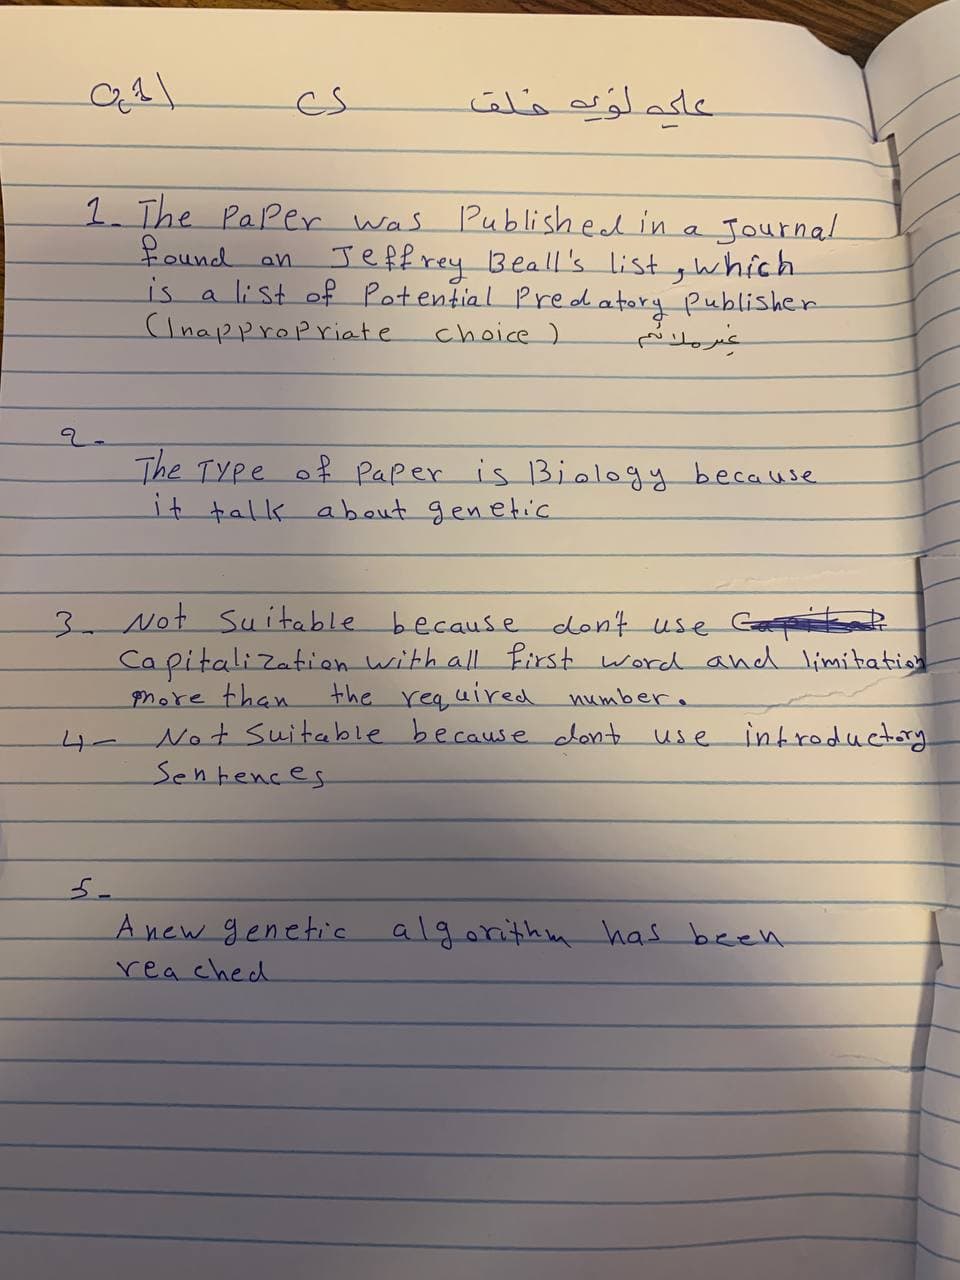 Q1) CS علي لؤي خلف
1- The Paper was Published in a Journal
found on Jeffrey Beall's list, which
is a list of Potential Predatory publisher
(Inappropriate choice) غير ملائم
2-
The Type of paper is Biology because
it talk about genetic
3- Not Suitable because don't use
Capitalization with all first word and limitation
more than the required number.
4- Not Suitable because dont use introductory
Sentences
5-
A new genetic algorithm has been
reached